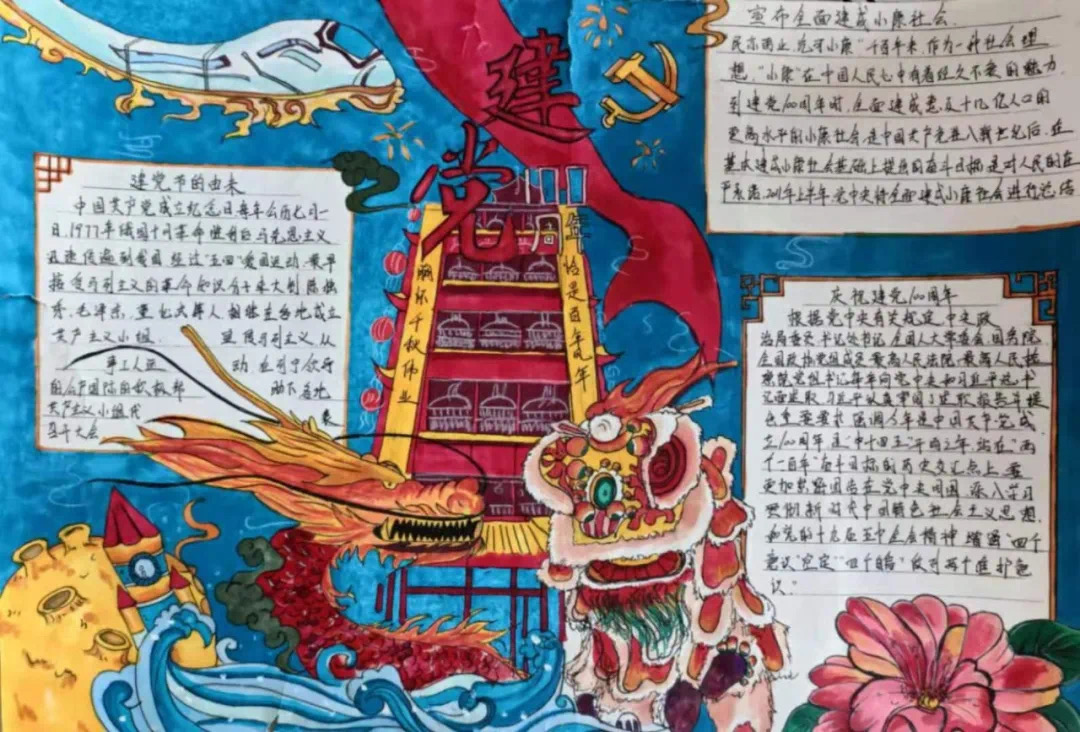 建党100周年
丽乐千秋伟业
恰是百年风华
建党节的由来
中国共产党成立纪念日每年公历七月一
日,1977年俄国十月革命胜利后马克思主义
迅速传遍到我国 经过"五四"爱国运动,最早
接受马列主义的革命知识分子李大钊 陈独
秀,毛泽东,董必武等人 相继在各地成立
共产主义小组
动
助下各地
共产主义小组代
表
宣布全面建成小康社会
民亦劳止,汔可小康"千百年来,作为一种社会理
想,"小康"在中国人民心中有着经久不衰的魅力
到建党100周年时,全面建成惠及十几亿人口的
更高水平的小康社会,是中国共产党进入新世纪后,在
基本建成小康社会基础上提出的奋斗目标是对人民的庄
严承诺,2021年上半年党中央将全面建成小康社会进行总结
庆祝建党100周年
根据党中央有关规定,中央政
治局委员,书记处书记,全国人大常委会,国务院,
全国政协党组成员 最高人民法院,最高人民检
察院党组书记每年向党中央和习近平总书
记述职
强调今年是中国共产党成
立100周年是"十四五"开局之年,站在"两
个一百年"奋斗目标的历史交汇点上,要
更加紧密团结在党中央周围 深入学习
贯彻新时代中国特色社会主义思想,
和党的十九届五中全会精神 增强"四个
意识"坚定"四个自信"做到两个维护意
识."